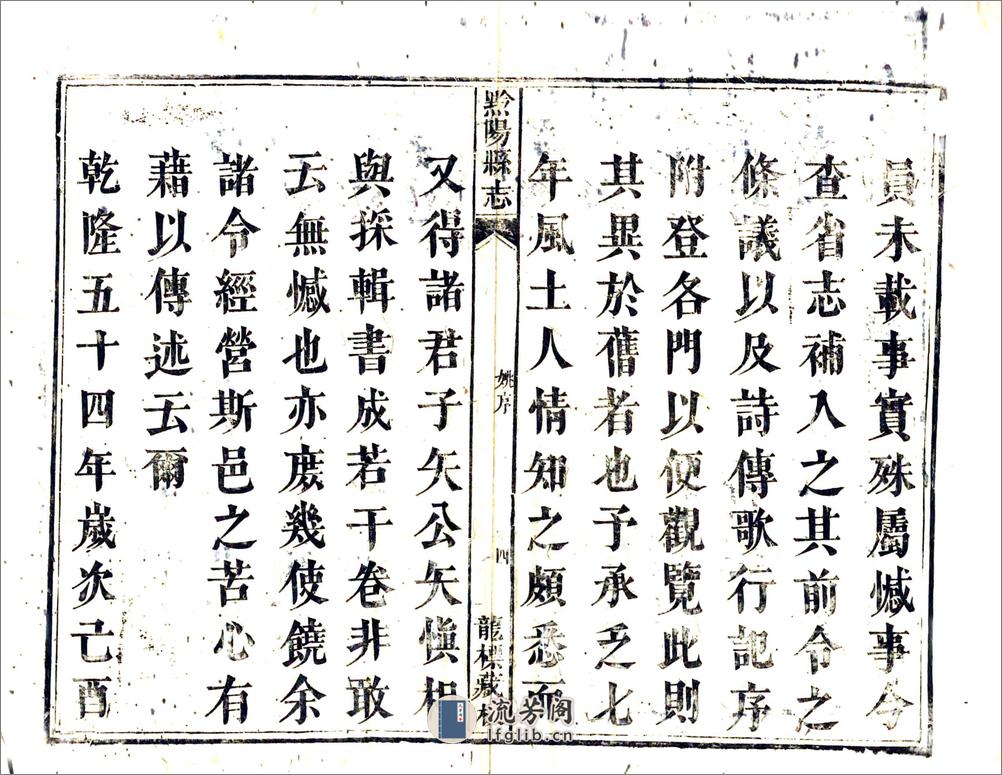 員未載事實殊屬憾事今
查省志補入之其前令之
條議以及詩傳歌行記序
附登各門以便觀覽此則
其異於舊者也予承乏七
年風土人情知之頗悉而
黔陽縣志
姚序
四
龍標藏板
又得諸君子矢公矢慎相
與採輯書成若干卷非敢
云無憾也亦庶幾使饒余
諸令經營斯邑之苦心有
藉以傳述云爾
乾隆五十四年歲次己酉
流芳阁
lfglib.cn